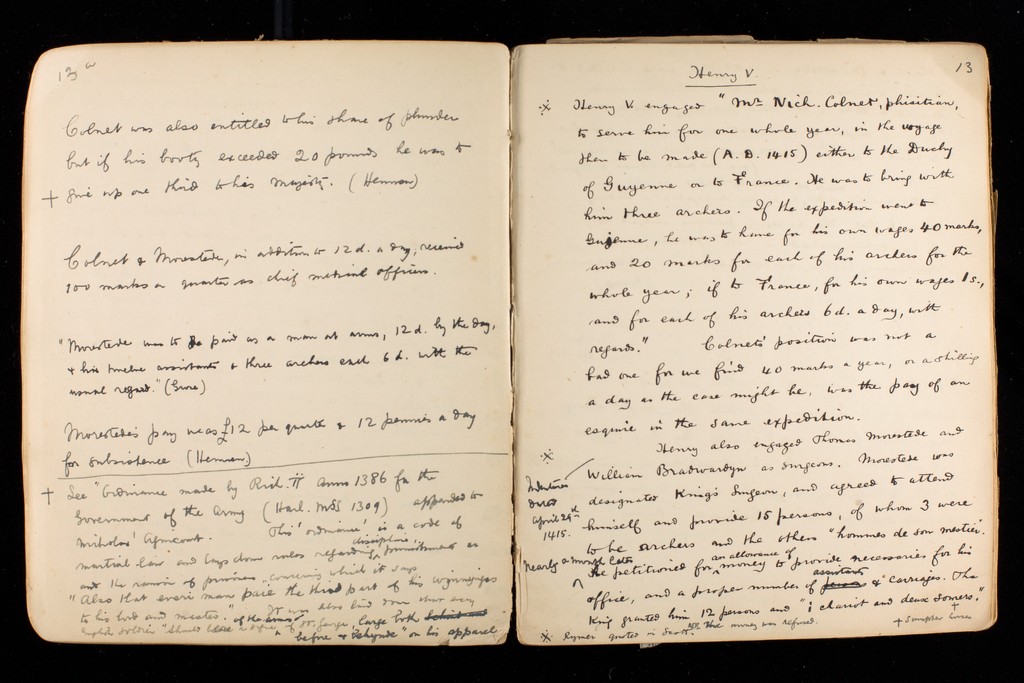 13 a
Colnet was also entitled to his share of plunder
but if his booty exceeded 20 pounds he was to
+ give up one third to his majesty. (Hennen)
Colnet & Morestede, in addition to 12 d. a day, received
100 marks a quarter as chief medical officers.
"Morestede was to be paid as a man at arms, 12 d. by the day,
& his twelve assistants & three archers each 6 d. with the
usual regard." (Gore)
Morestede's pay was £12 per quarter & 12 pennies a day
for subsistence (Hennen)
+ See "Ordinance made by Rich. II Anno 1386 for the
Government of the Army (Harl. MSS 1309) appended to
Nicholas' Agincourt. This 'ordinance' is a code of
martial law and lays down rules regarding discipline, punishment
and the ransom of prisoners, concerning which it says
"Also that everi man paie the third part of his wynnyges
to his lord and maister." It was also laid down that every
English soldier should a signe of St. George, large both
before & behynde" on his apparel
13
Henry V.
※ Henry V. engaged "Mr. Nich. Colnet, phisitian,
to serve him for one whole year, in the voyage
then to be made (A.D. 1415) either to the Duchy
of Guyenne or to France. He was to bring with
him three archers. If the expedition went to
Guienne, he was to have for his own wages 40 marks,
and 20 marks for each of his archers for the
whole year; if to France, for his own wages 1s.,
and for each of his archers 6d. a day, with
regards." Colnet's position was not a
bad one for we find 40 marks a year, or a shilling
a day as the case might be, was the pay of an
esquire in the same expedition.
※ Henry also engaged Thomas Morestede and
William Bradwardyn as surgeons. Morestede was
Indenture
dated
April 29th
1415.
designated King's Surgeon, and agreed to attend
himself and provide 15 persons, of whom 3 were
to be archers and the others "hommes de son mestier".
nearly a month later
He petitioned for an allowance of money to provide necessaries for his
office, and a proper number of assistants & "carriages. The
King granted him 12 persons and "i chariot and deux somers."
※ Rymer quoted in South. The money was refused.
+ Sumpter horses